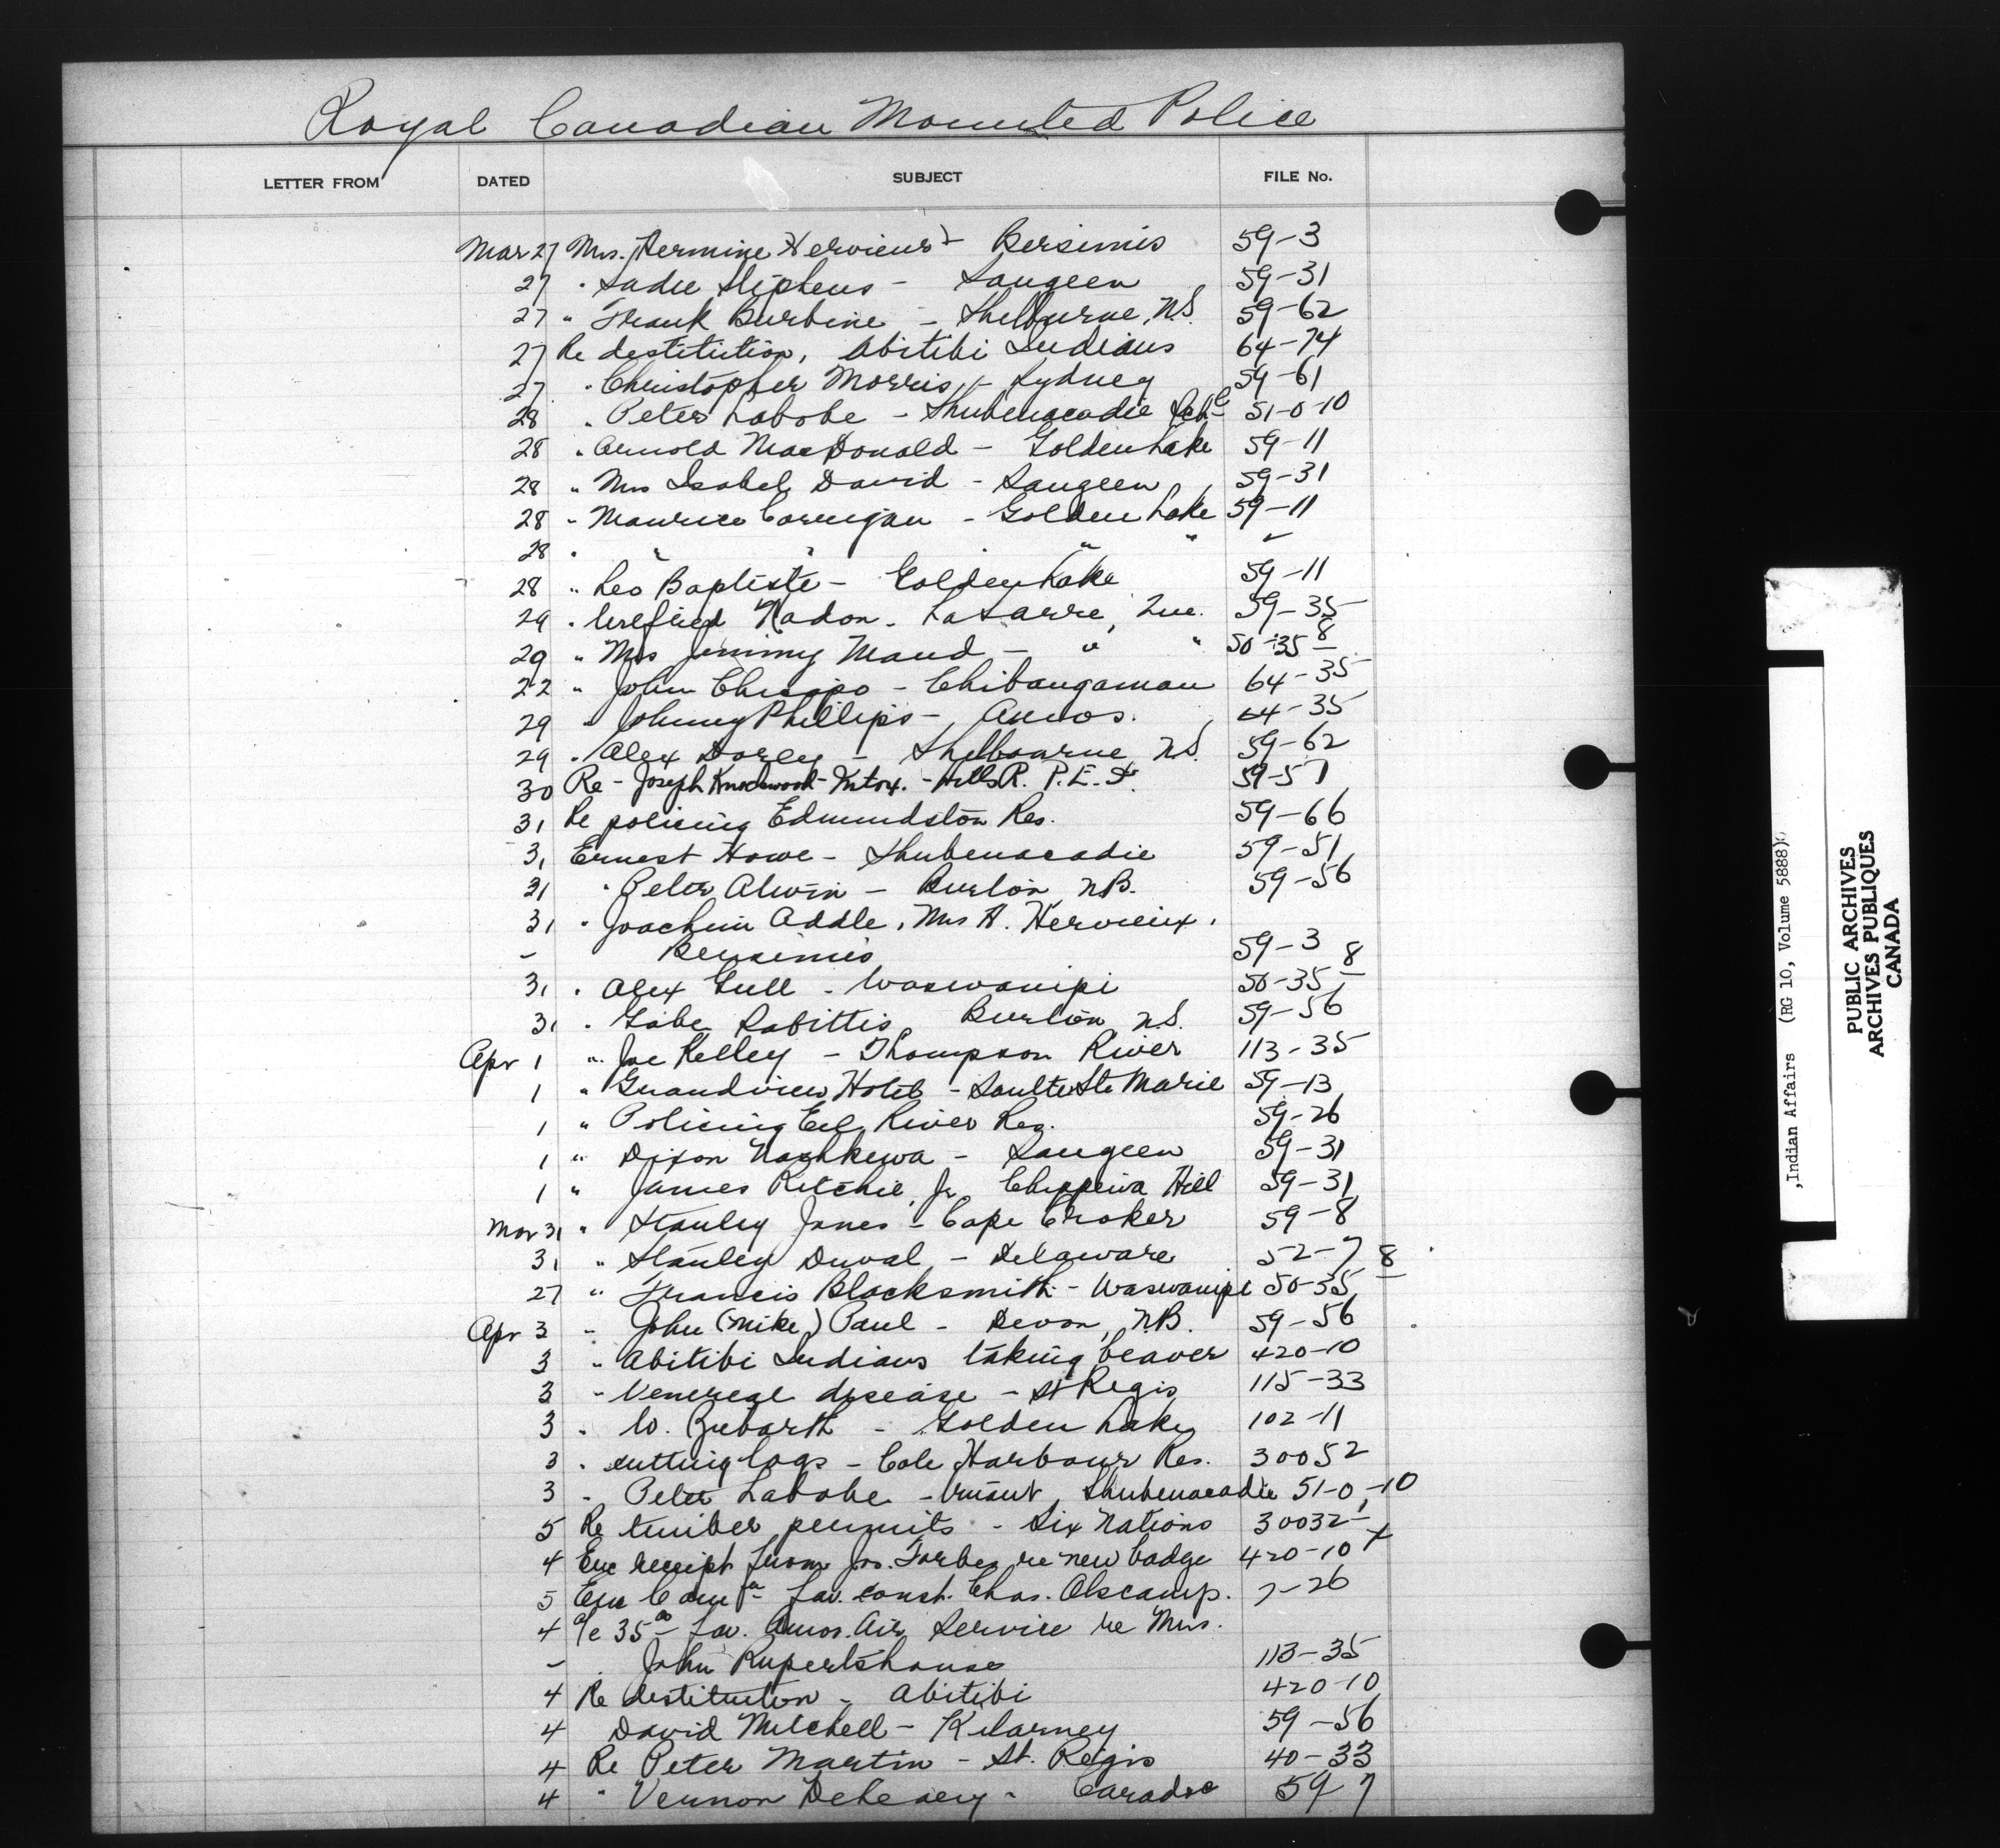 Royal Canadian Mounted Police
LETTER FROM DATED SUBJECT FILE No.
Mar 27 Mrs. Hermine Hervieux - Bersimis 59-3
27 " Sadie Stephens - Saugeen 59-31
27 " Frank Burbine - Shelburne, N.S. 59-62
27 Re destitution, Abitibi Indians 64-74
27 " Christopher Morris - Sydney 59-61
28 " Peter Labobe - Shubenacadie 51-0-10
28 " Arnold MacDonald - Golden Lake 59-11
28 " Mrs Isabel David - Saugeen 59-31
28 " Maurice - Golden Lake 59-11
28 " " " " "
28 " Leo Baptiste - Golden Lake 59-11
29 " Nadon - LaSarre, Que. 59-35
29 " Mrs Jimmy Maud - " " 50-35 8
22 " John - Chibougamau 64-35
29 " Johnny Phillips - Amos. 64-35
29 " Alex - Shelbourne N.S. 59-62
30 Re - Joseph Knockwood - Intox. - Hills R. P.E.I. 59-57
31 Re policing Edmundston Res. 59-66
31 Ernest Howe - Shubenacadie 59-51
31 " Peter Alwin - Burton N.B. 59-56
31 " Joachim Addle, Mrs H. Hervieux,
- Bersimis 59-3
31 " Alex Gull - Waswanipi 50-35 8
31 " Gabe Burton N.S. 59-56
Apr 1 " Joe Kelley - Thompson River 113-35
1 " Grandview Hotel - Saulte Ste Marie 59-13
1 " Policing Eel River Res. 59-26
1 " Dixon Nashkewa - Saugeen 59-31
1 " James Ritchie, Jr. Chippewa Hill 59-31
Mar 31 " Stanley Jones - Cape Croker 59-8
31 " Stanley Duval - Delaware 52-7
27 " Francis Blacksmith - Waswanipi 50-35 8
Apr 3 " John (Mike) Paul - Devon, N.B. 59-56
3 " Abitibi Indians taking beaver 420-10
3 " Venereal disease - St Regis 115-33
3 " W. - Golden Lake 102-11
3 " cutting logs - Cole Harbour Res. 30052
3 " Peter Labobe - truant, Shubenacadie 51-0-10
5 Re timber permits - Six Nations 30032
4 Enc receipt from Jos. Forbes re new badge 420-10 X
5 Enc fav. const. Chas. 7-26
4 a/c 35 fav. Amos Air Service re Mrs.
- John Rupertshouse 113-35
4 Re destitution - Abitibi 420-10
4 David Mitchell - Kilarney 59-56
4 Re Peter Martin - St. Regis 40-33
4 " Vernon - Caradoc 59 7
,Indian Affairs (RG 10, Volume 5888)
PUBLIC ARCHIVES
ARCHIVES PUBLIQUES
CANADA